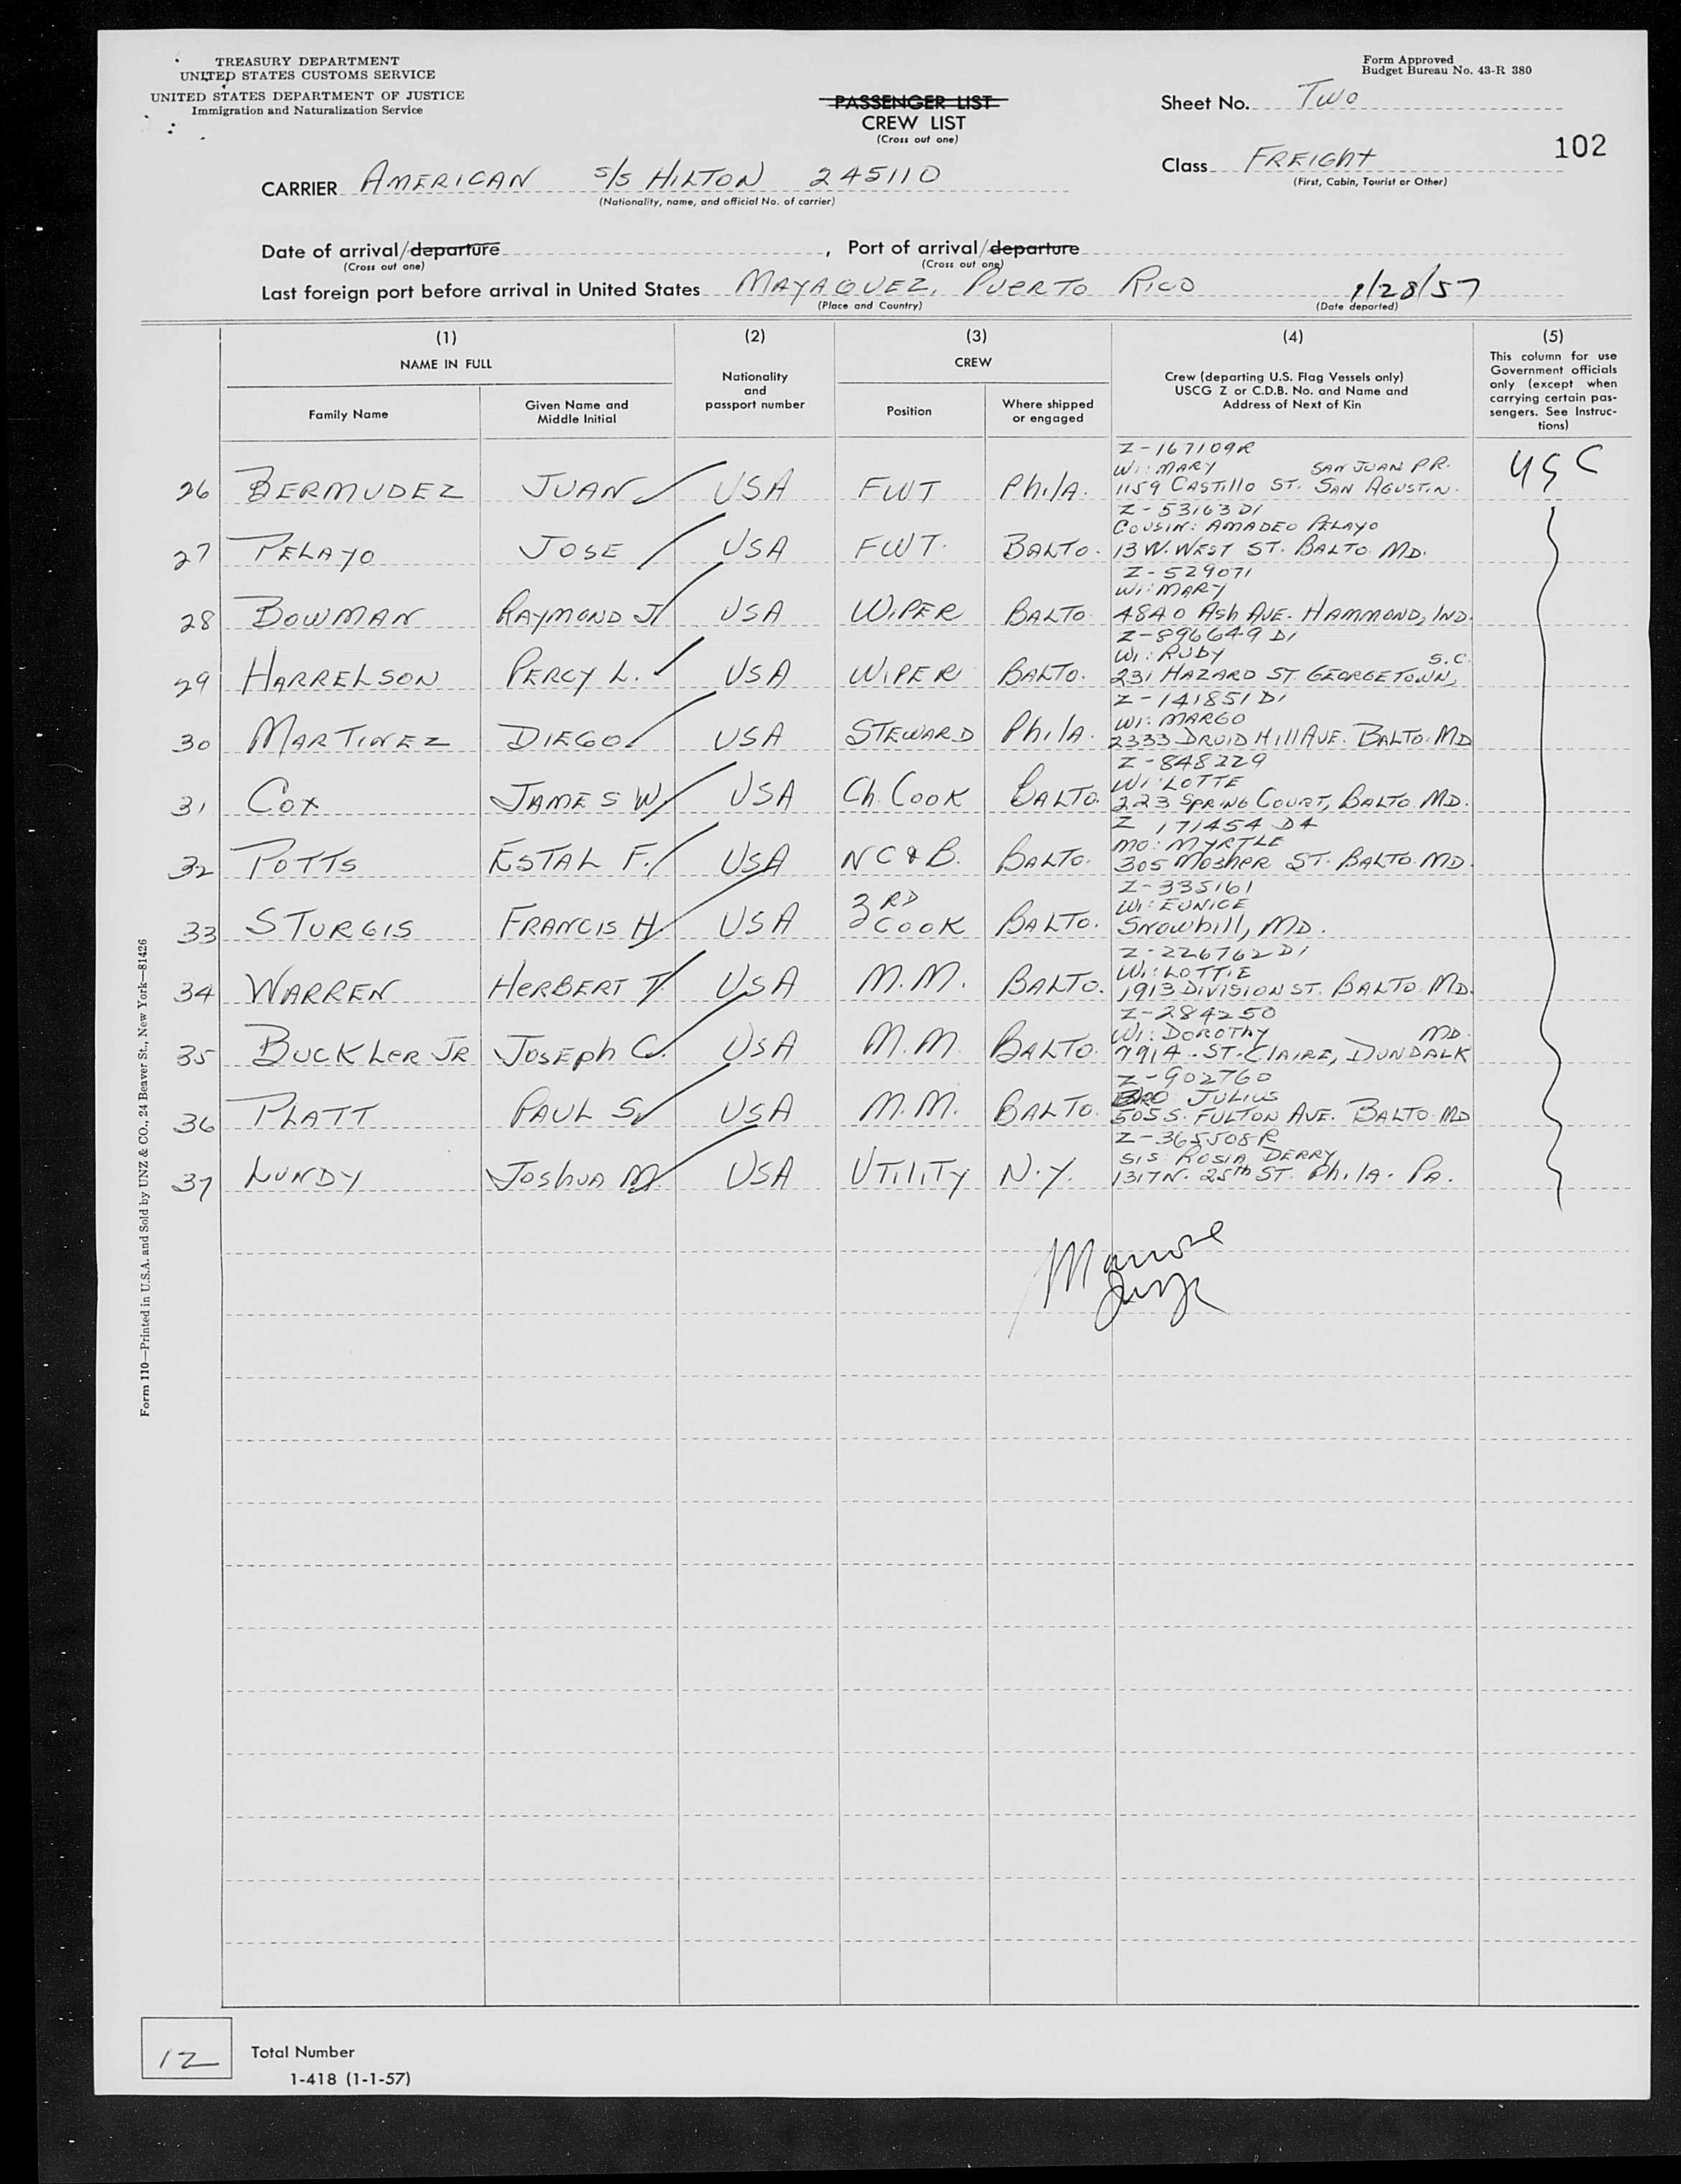 TREASURY DEPARTMENT
UNITED STATES CUSTOMS SERVICE
UNITED STATES DEPARTMENT OF JUSTICE
Immigration and Naturalization Service
Form Approved
Budget Bureau No. 43-R 380
PASSENGER LIST
CREW LIST
(Cross out one)
Sheet No. Two
102
Class FREIGHT
(First, Cabin, Tourist or Other)
CARRIER AMERICAN S/S HILTON 245110
(Nationality, name, and official No. of carrier)
Date of arrival/departure , Port of arrival/departure
(Cross out one) (Cross out one)
Last foreign port before arrival in United States MAYAQUEZ, PUERTO RICO 1/28/57
(Place and Country) (Date departed)
(1) (2) (3) (4) (5)
NAME IN FULL
Family Name
Given Name and
Middle Initial
Nationality
and
passport number
CREW
Position
Where shipped
or engaged
Crew (departing U.S. Flag Vessels only)
USCG Z or C.D.B. No. and Name and
Address of Next of Kin
This column for use
Government officials
only (except when
carrying certain pas-
sengers. See Instruc-
tions)
Z-167109R
WI: MARY SAN JUAN P.R.
26 BERMUDEZ JUAN USA FWT Phila. 1159 CASTILLO ST. SAN AGUSTIN. USC
Z-53163 D1
COUSIN: AMADEO PELAYO
27 PELAYO JOSE USA FWT. BALTO. 13 W. WEST ST. BALTO. MD.
Z-529071
WI: MARY
28 BOWMAN RAYMOND J USA WIPER BALTO. 4840 Ash AVE. HAMMOND, IND.
Z-896649 D1
WI: RUBY S.C.
29 HARRELSON PERCY L. USA WIPER BALTO. 231 HAZARD ST. GEORGETOWN,
Z-141851 D1
WI: MARGO
30 MARTINEZ DIEGO USA STEWARD Phila. 2333 DRUID Hill AVE. BALTO. MD
Z-848229
WI: LOTTE
31 COX JAMES W. USA Ch. COOK BALTO. 223 SPRING COURT, BALTO. MD.
Z 171454 D4
MO: MYRTLE
32 POTTS ESTAL F. USA NC & B. BALTO. 305 Mosher ST. BALTO. MD.
Z-335161
WI: EUNICE
33 STURGIS FRANCIS H USA 3RD COOK BALTO. Snowhill, MD.
Z-226762 D1
WI: LOTTIE
34 WARREN HERBERT T USA M.M. BALTO. 1913 DIVISION ST. BALTO. MD.
Z-284250
WI: DOROTHY MD.
35 BUCKLER JR JOSEPH C. USA M.M. BALTO. 791A. ST. CLAIRE, DUNDALK
Z-902760
BRO: JULIUS
36 PLATT PAUL S. USA M.M. BALTO. 505 S. FULTON AVE. BALTO. MD
Z-365508R
SIS: ROSIA DERRY
37 LUNDY JOSHUA M USA UTILITY N.Y. 1317 N. 25th ST. Phila. PA.
Form 110—Printed in U.S.A. and Sold by UNZ & CO., 24 Beaver St., New York—81426
12 Total Number
1-418 (1-1-57)